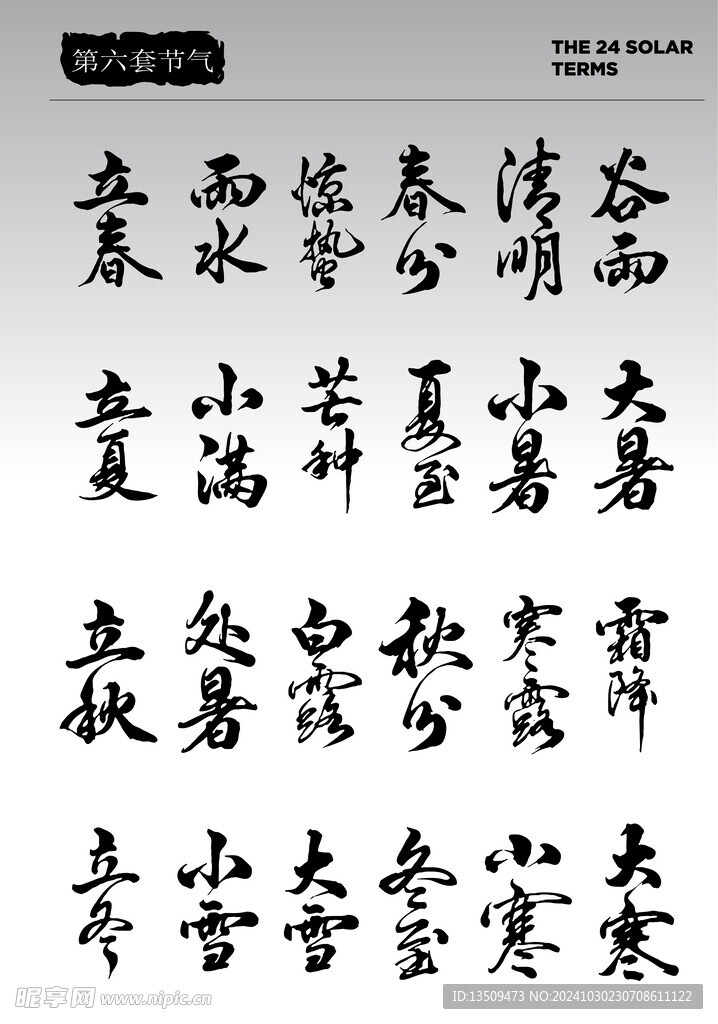 第六套节气
THE 24 SOLAR
TERMS
立春 雨水 惊蛰 春分 清明 谷雨
立夏 小满 芒种 夏至 小暑 大暑
立秋 处暑 白露 秋分 寒露 霜降
立冬 小雪 大雪 冬至 小寒 大寒
昵享网 www.nipic.cn
ID:13509473 NO:20241030230708611122